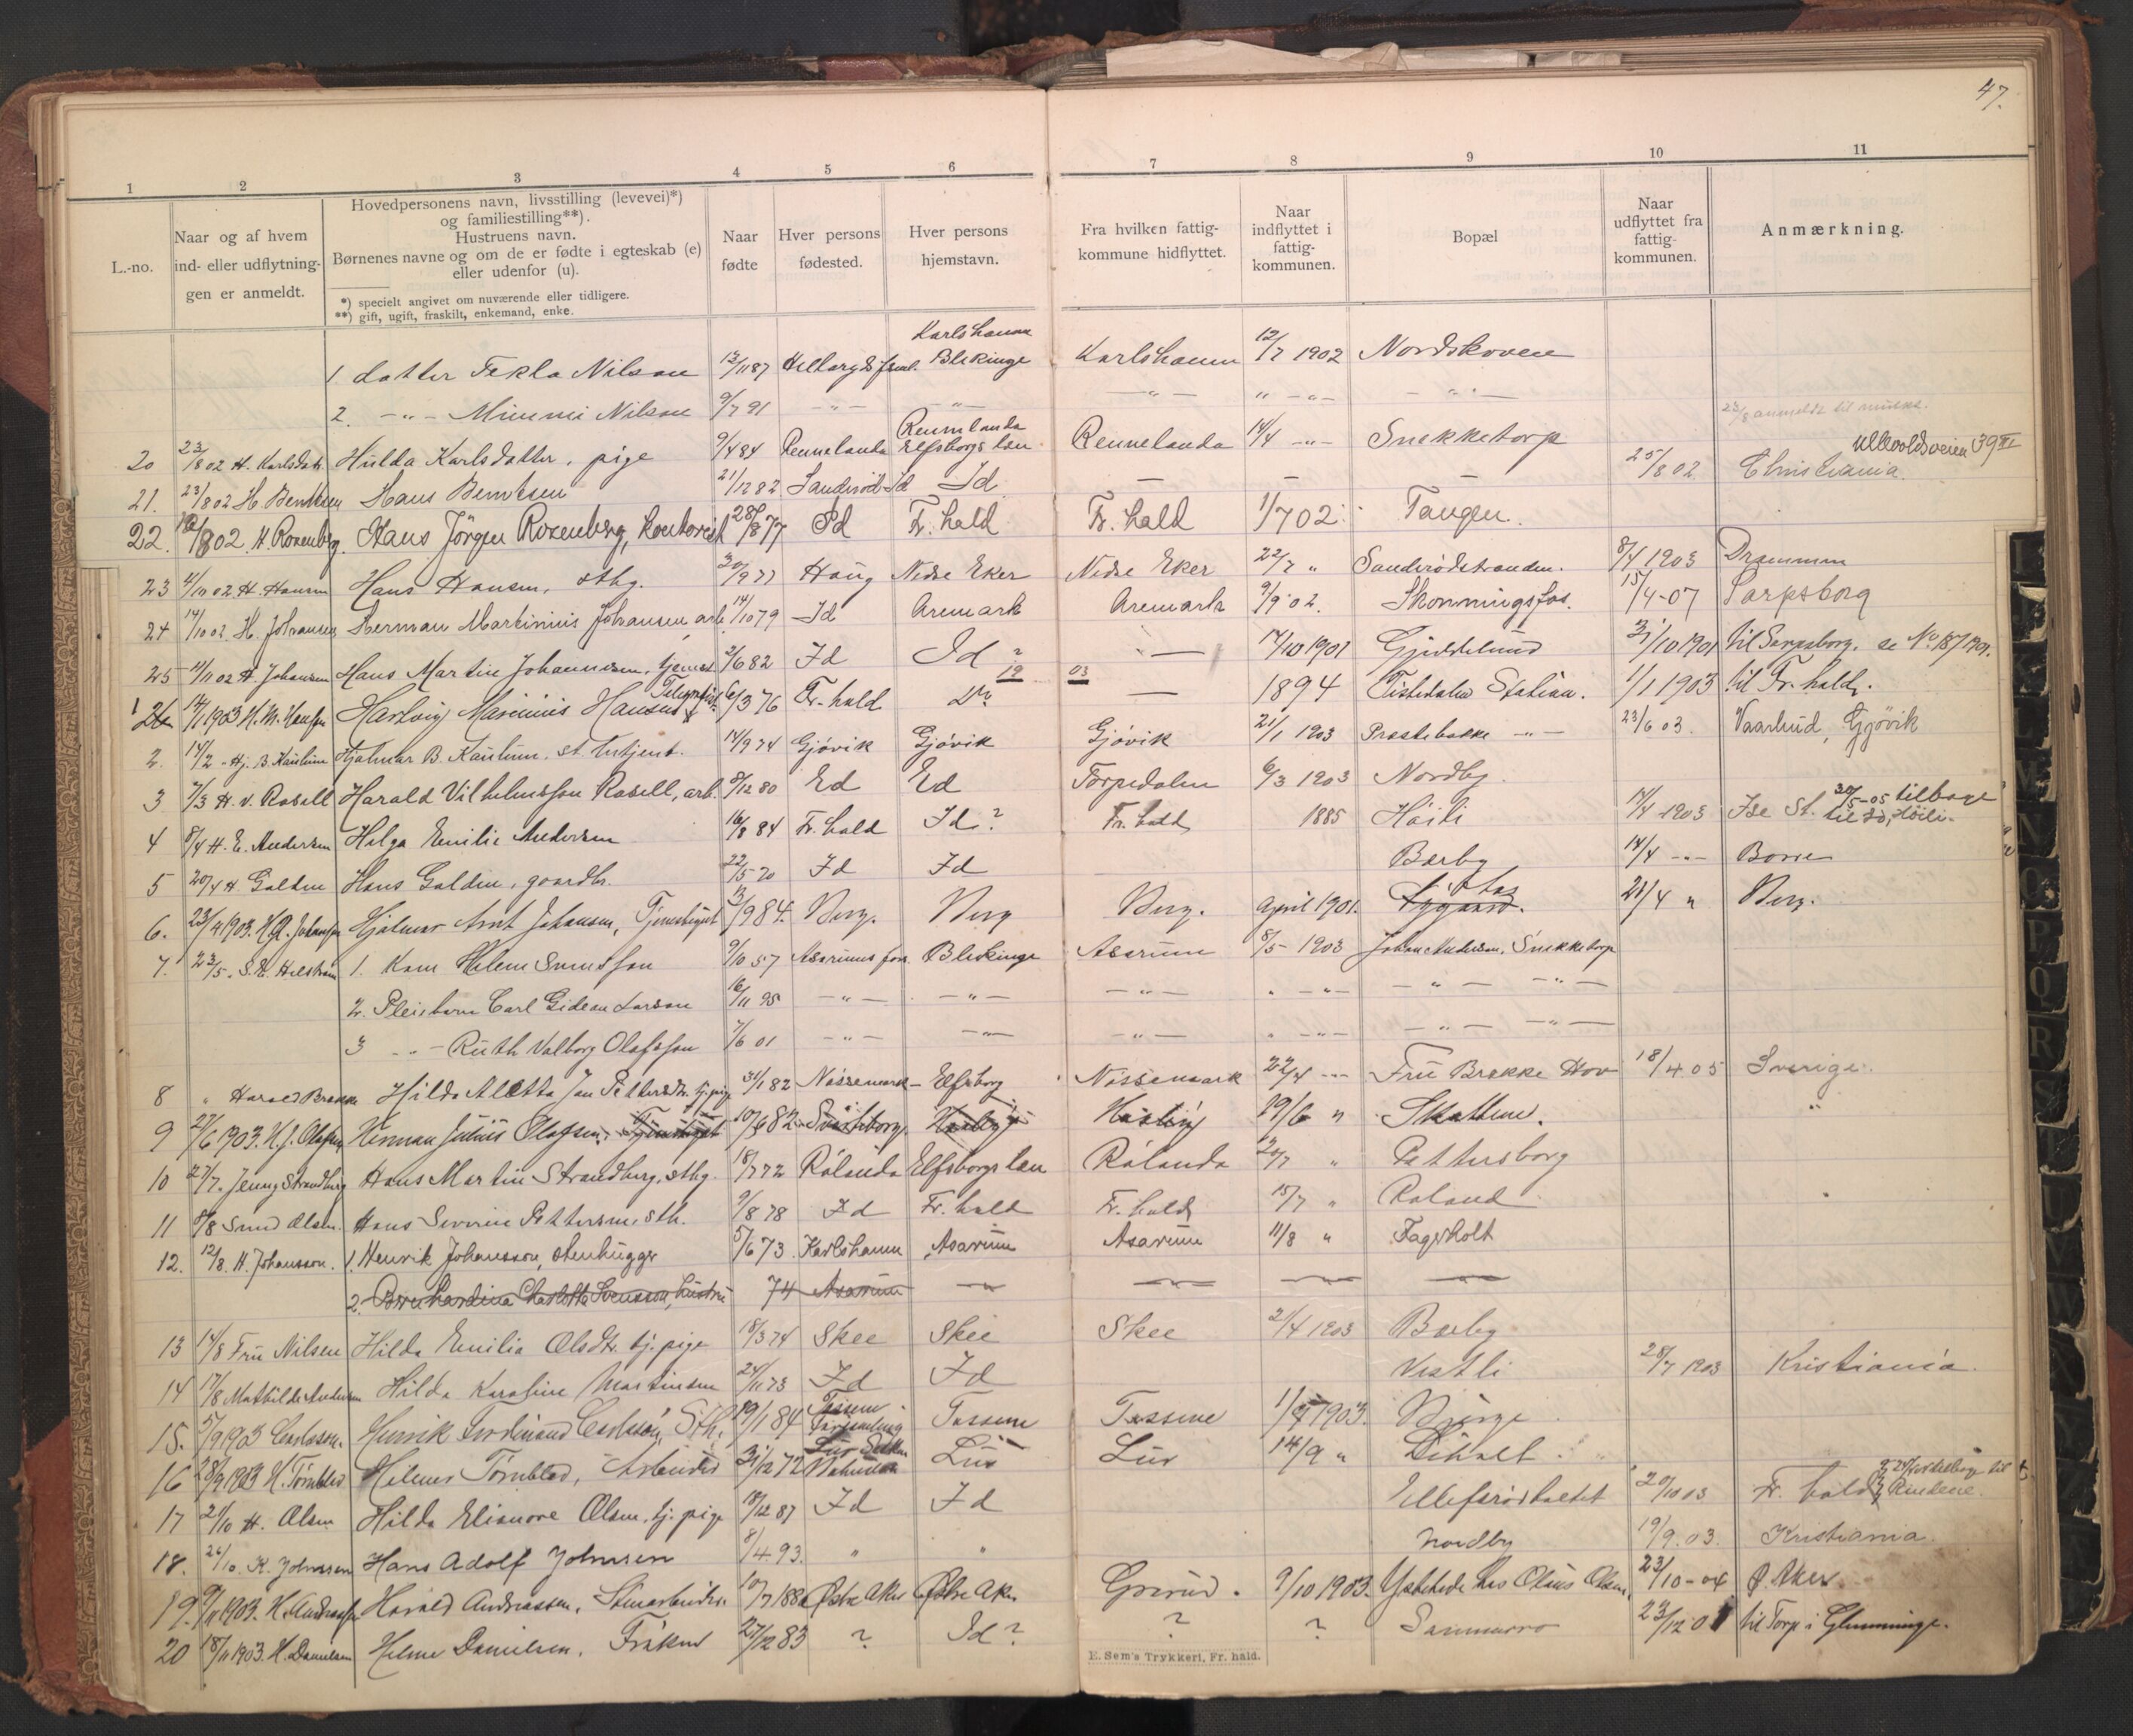 47.
1 2 3 4 5 6 7 8 9 10 11
L.-no.
Naar og af hvem ind- eller udflytningen er anmeldt.
Hovedpersonens navn, livsstilling (levevei)*) og familiestilling**).
Hustruens navn.
Børnenes navne og om de er fødte i egteskab (e) eller udenfor (u).
*) specielt angivet om nuværende eller tidligere.
**) gift, ugift, fraskilt, enkemand, enke.
Naar fødte
Hver persons fødested.
Hver persons hjemstavn.
Fra hvilken fattigkommune hidflyttet.
Naar indflyttet i fattigkommunen.
Bopæl
Naar udflyttet fra fattigkommunen.
Anmærkning.
1. datter Tekla Nilson 13/11 87 Karlshamn Blekinge Karlshamn 12/7 1902 Nordskoven
2. -"- Mimmi Nilson 9/7 91 -"- -"- -"- " -"- -"-
20 23/8 02 H. Karlsdatr. Hulda Karlsdatter, pige 9/4 84 Rennelanda Rennelanda Elfsborgs län Rennelanda 14/4 -"- Snekketorp
21. 23/8 02 H. Berntsen Hans Berntsen 21/12 82 Sanderöd Id Id — — — 25/8 02 Christiania Ullevoldsveien 39 III
22. /8 02 H. Rosenberg. Hans Jörgen Rosenberg, kontorist 28/8 77 Id Fr. hald Fr. hald 1/7 02. Tangen.
23 4/10 02 H. Hansen Hans Hansen, sthg. 30/9 77 Haug Nedre Eker Nedre Eker 22/7 " Sanderödstranden. 8/4 1903 Drammen
24 14/10 02. H. Johansen Herman Martinius Johansen, arb. 14/10 79 Id Aremark Aremark 9/9 02. Skonningsfos. 15/4-07 Sarpsborg
25 11/11 02 H. Johansen Hans Martin Johannesen, tjenest 2/6 82 Id Id ? — 14/10 1901 Gjeddelund 31/10 1901 til Sarpsborg. se No 187 1901.
19 03
1 26 14/1 1903 H. M. Hansen Hartvig Marinius Hansen Telegrafist. 6/3 76 Fr. hald Do — 1894 Tistedalen Station. 1/1 1903 til Fr. hald.
2. 14/2 - Hj. B. Kaulum Hjalmar B. Kaulum. st. betjent. 14/9 74 Gjövik Gjövik Gjövik 21/1 1903 Prestebakke -"- 23/6 03. Vaarlund, Gjövik
3 7/3 H. V. Rosell Harald Vilhelmsson Rosell, arb. 9/12 80 Ed Ed Torpedalen 6/3 1903 Nordby.
4 8/4 H. E. Andersen Helga Emilie Andersen 16/8 84 Fr. hald Id ? Fr. hald 1885 Höili 14/4 1903 Ise St. 30/5-05 tilbage til Id, Höili.
5 20/4 H. Galden Hans Galden, gaardbr. 22/5 70 Id Id Barby 14/4 -"- Borre
6. 23/4 1903. H. A. Johansen Hjalmar Arnt Johansen, Tjenestegut 13/9 84. Berg. Berg Berg. April 1901. 21/4 " Berg.
7. 23/5. 1. Kone Helene Svensson 9/10 57 Blekinge Asarum 8/5 1903 Johan Anderson, Snekketorp
2. Pleiebarn Carl Gideon Larson 16/11 95 -"- -"- -"- " -"- -"- -"-
3 -"- Ruth Valborg Olofsson 7/6 01 -"- -"- -"- " -"- -"- -"-
8 " Harald Brække Hilda Aletta Jan Pettersdr. tj.pige 31/1 82 Nössemark Elfsborg Nössemark 22/4 -"- Fru Brække Hov 18/4 05 Sverige.
9 27/6 1903. H. J. Olafsen Herman Julius Olafsen, Tjenestegut 10/6 82 Hasling 19/6 " Skatten. "
10 27/7. Jenny Strandberg Hans Martin Strandberg, sthg. 18/7 72 Rölanda Elfsborgs län Rölanda 20/7 " Pettersborg
11 8/8 Svend Olsen. Hans Severin Pettersen, sth. 9/8 78 Id Fr. hald Fr. hald 15/7 " Röland
12. 12/8. H. Johansson. 1. Henrik Johansson, stenhugger 5/6 73. Karlshamn Asarum Asarum 11/8 " Fagerholt
2. Bernhardina Charlotta Svensson, hustru 74 Asarum — — — —
13 14/8 Fru Nilsen Hilda Emilia Olsdtr. tj. pige 18/3 74 Skee Skee Skee 21/4 1903 Barby
14 17/8 Mathilde Andersen Hilda Karoline Martinsen 24/11 73 Id Id Vestli 28/7 1903 Kristiania.
15. 5/9 1903 Carlsson. Henrik Ferdinand Carlsson, Sth. 19/1 84 Tossene Forsamling Tossene Tossene 1903. Berge
16 28/9 1903 H. Törnblad Helmer Törnblad, Arbeider 31/12 72 Lur Lur 14/9 "
17 21/10 H. Olsen Hilda Elionore Olsen, tj. pige 18/12 87 Id Id Ellefsrödholtet 20/10 03 Fr. hald
18. 26/10. K. Johnsen Hans Adolf Johnsen 8/4 93. " " Nordby 19/9. 03. Kristiania.
19. 9/11 1903. H. Andreassen Harald Andreassen, Stenarbeider. 10/7 1880 Østre Aker Østre Aker Grorud. 9/10 1903. Ystehede hos Olaus Olsen. 23/10-04 Ø. Aker.
20 18/11 1903. H. Danielsen Helene Danielsen, Frøken 27/12 83 ? Id ? ? ? 23/12 01 til Torp i Glemminge.
E. Sem's Trykkeri, Fr. hald.